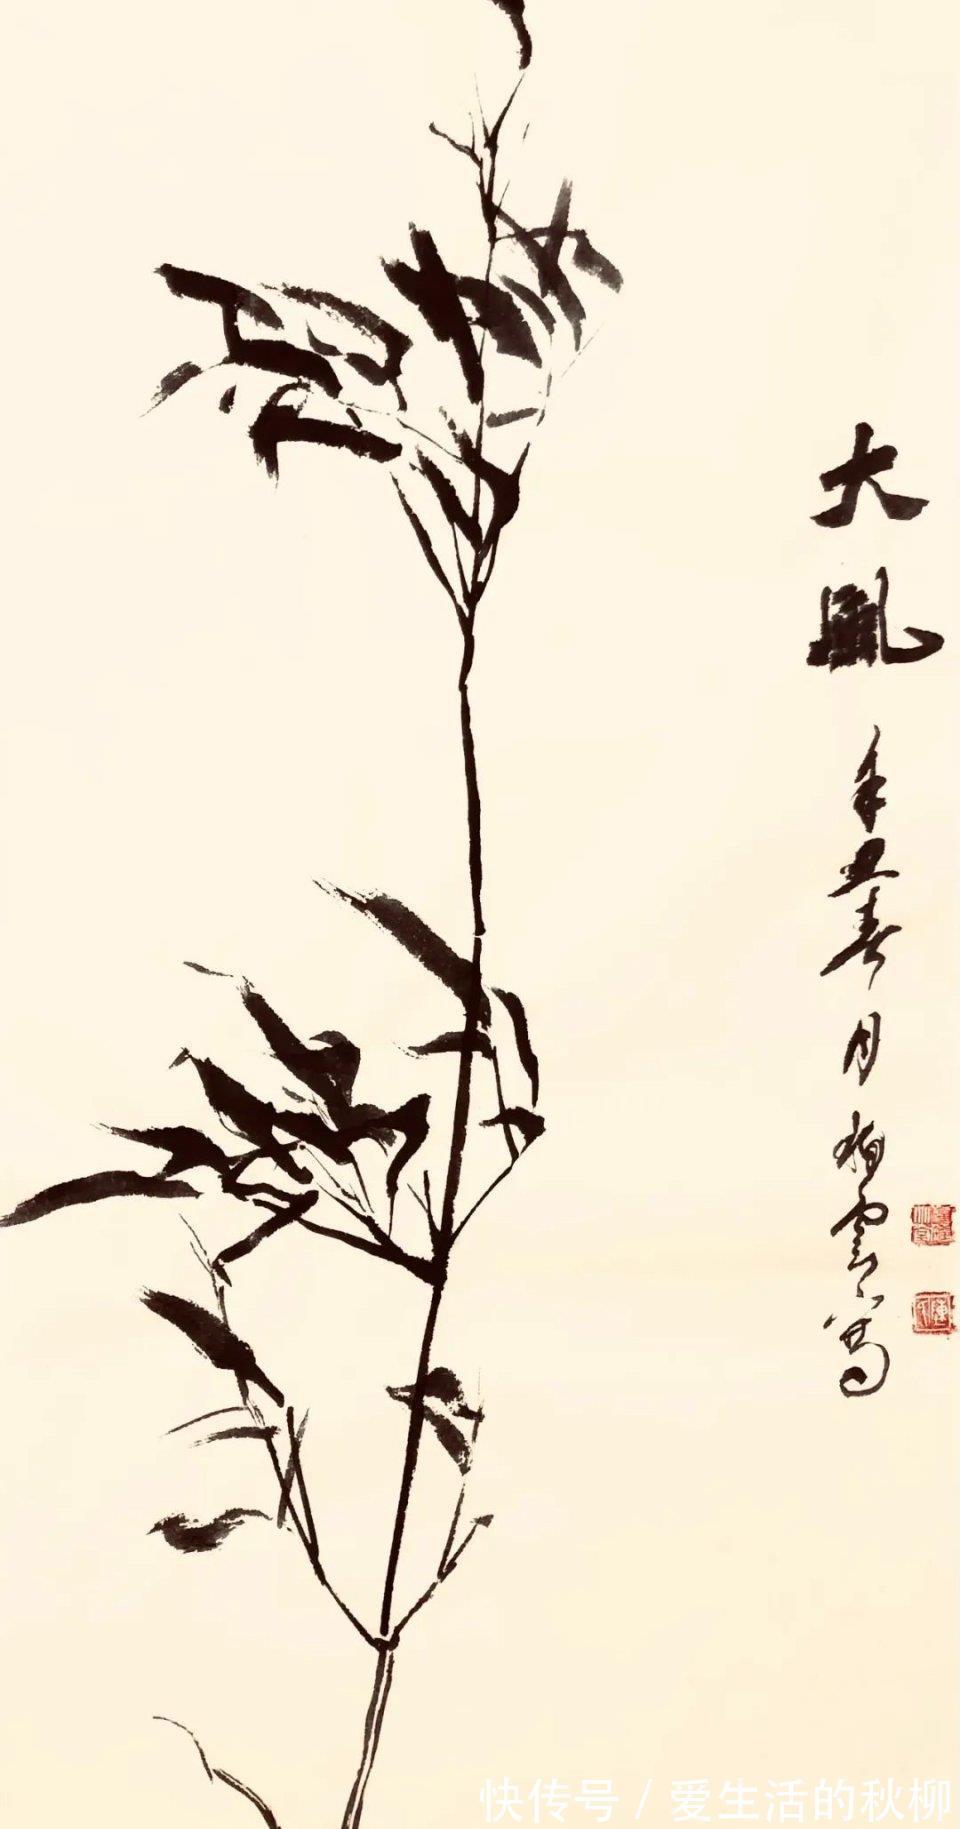 大風
辛丑春月 柏雲寫
快传号 / 爱生活的秋柳